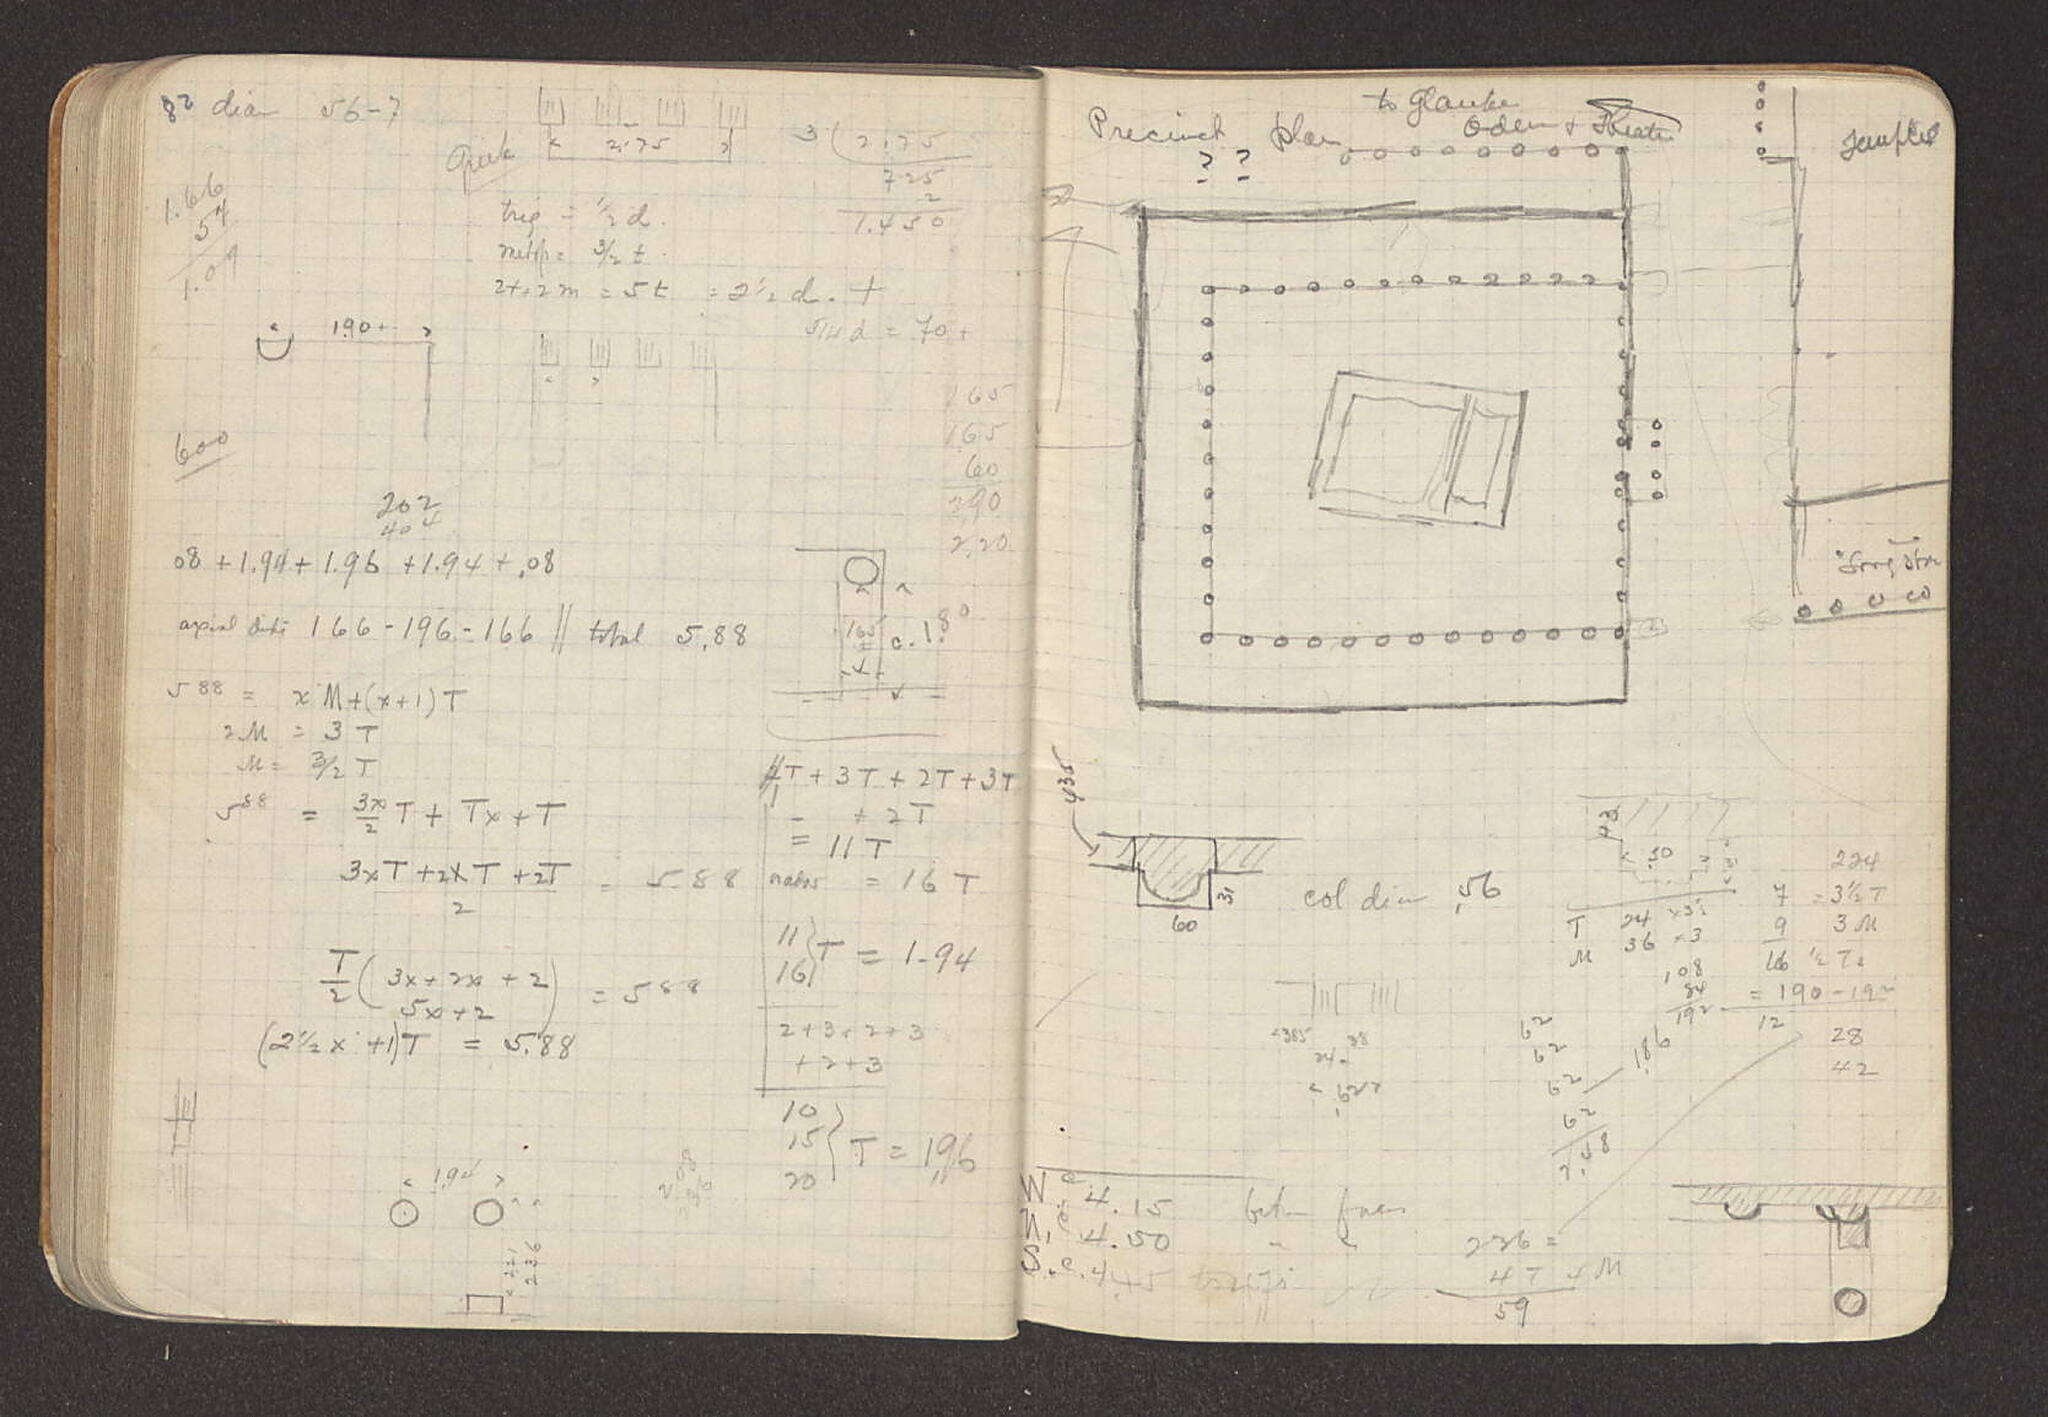 82 diam 56-7
Greek
2.75
3 ( 2.75
725
2
1.450
1.66
54
1.09
trig = 1/2 d.
metop = 3/2 t.
2t+2m = 5t = 2 1/2 d. +
5/4 d = 70+
190+
165
165
60
290
2,20
600
202
404
08 + 1.94 + 1.96 + 1.94 + .08
axial dists 166 - 196 - 166 // total 5.88
165
c. 1.80
5 88 = x M + (x+1) T
2M = 3 T
M = 3/2 T
5 88 = 3x/2 T + Tx + T
3xT + 2xT + 2T / 2 = 588
T/2 ( 3x + 2x + 2
5x + 2 ) = 5 88
(2 1/2 x + 1) T = 5.88
T + 3T + 2T + 3T
+ 2T
= 11 T
= 16 T
11
16 } T = 1.94
2+3+2+3
+2+3
10
15 } T = 196
20
1.94
236
Precinct plan
to Glauke
Odeum + Theater
? ?
Temple
Long Stoa
435
60
31
col diam .56
50
T 24 x 3 1/2
M 36 x 3
108
84
192
224
7 = 3 1/2 T
9 3 M
16 1/2 Ts
= 190 - 192
12
28
42
.385
38
24
62
62
62
62
2.48
186
W. c. 4.15 betw faces
N. c. 4.50 " "
S. c. 4.45
226 =
4T 4M
59